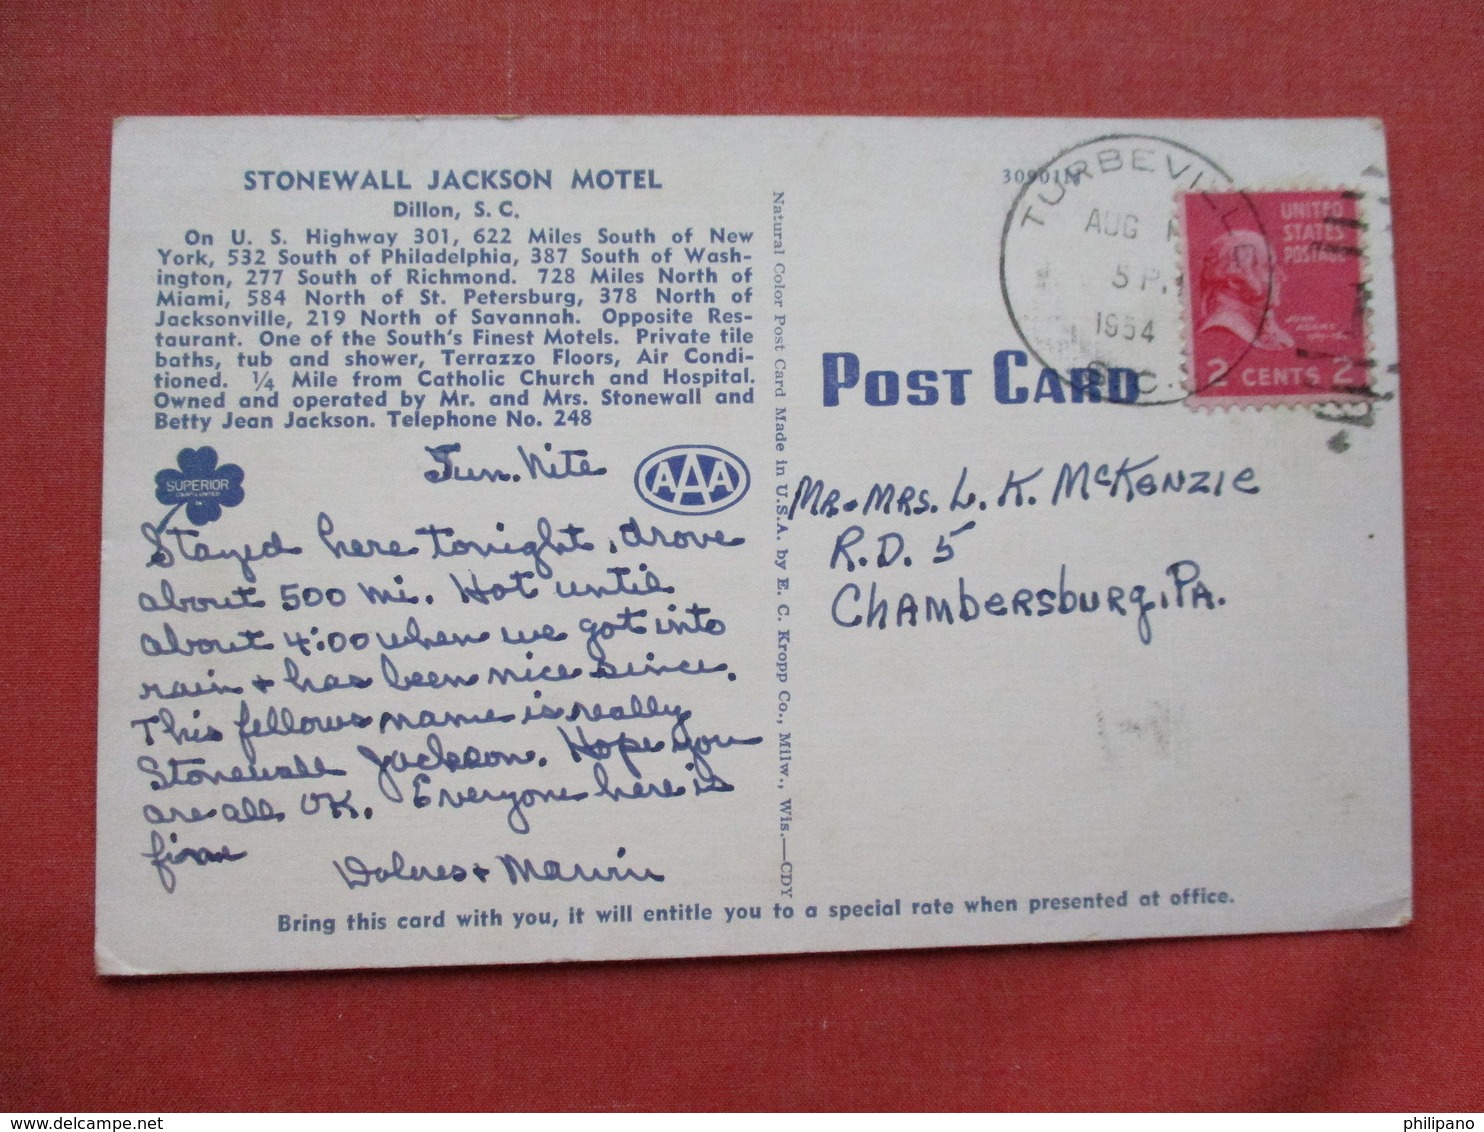 STONEWALL JACKSON MOTEL
Dillon, S. C.
On U. S. Highway 301, 622 Miles South of New
York, 532 South of Philadelphia, 387 South of Wash-
ington, 277 South of Richmond. 728 Miles North of
Miami, 584 North of St. Petersburg, 378 North of
Jacksonville, 219 North of Savannah. Opposite Res-
taurant. One of the South's Finest Motels. Private tile
baths, tub and shower, Terrazzo Floors, Air Condi-
tioned. ¼ Mile from Catholic Church and Hospital.
Owned and operated by Mr. and Mrs. Stonewall and
Betty Jean Jackson. Telephone No. 248
SUPERIOR
COURTS UNITED
AAA
Sun. Nite
Stayed here tonight, drove
about 500 mi. Hot until
about 4:00 when we got into
rain + has been nice since.
This fellows name is really
Stonewall Jackson. Hope you
are all OK. Everyone here is
fine
Dolores + Marvin
Bring this card with you, it will entitle you to a special rate when presented at office.
Natural Color Post Card Made in U.S.A. by E. C. Kropp Co., Milw., Wis.—CDY
TURBEVILLE
AUG
5 P.
1954
S.C.
UNITED
STATES
POSTAGE
JOHN
ADAMS
2 CENTS 2
POST CARD
Mr. Mrs. L. K. McKenzie
R.D. 5
Chambersburg, Pa.
philipano